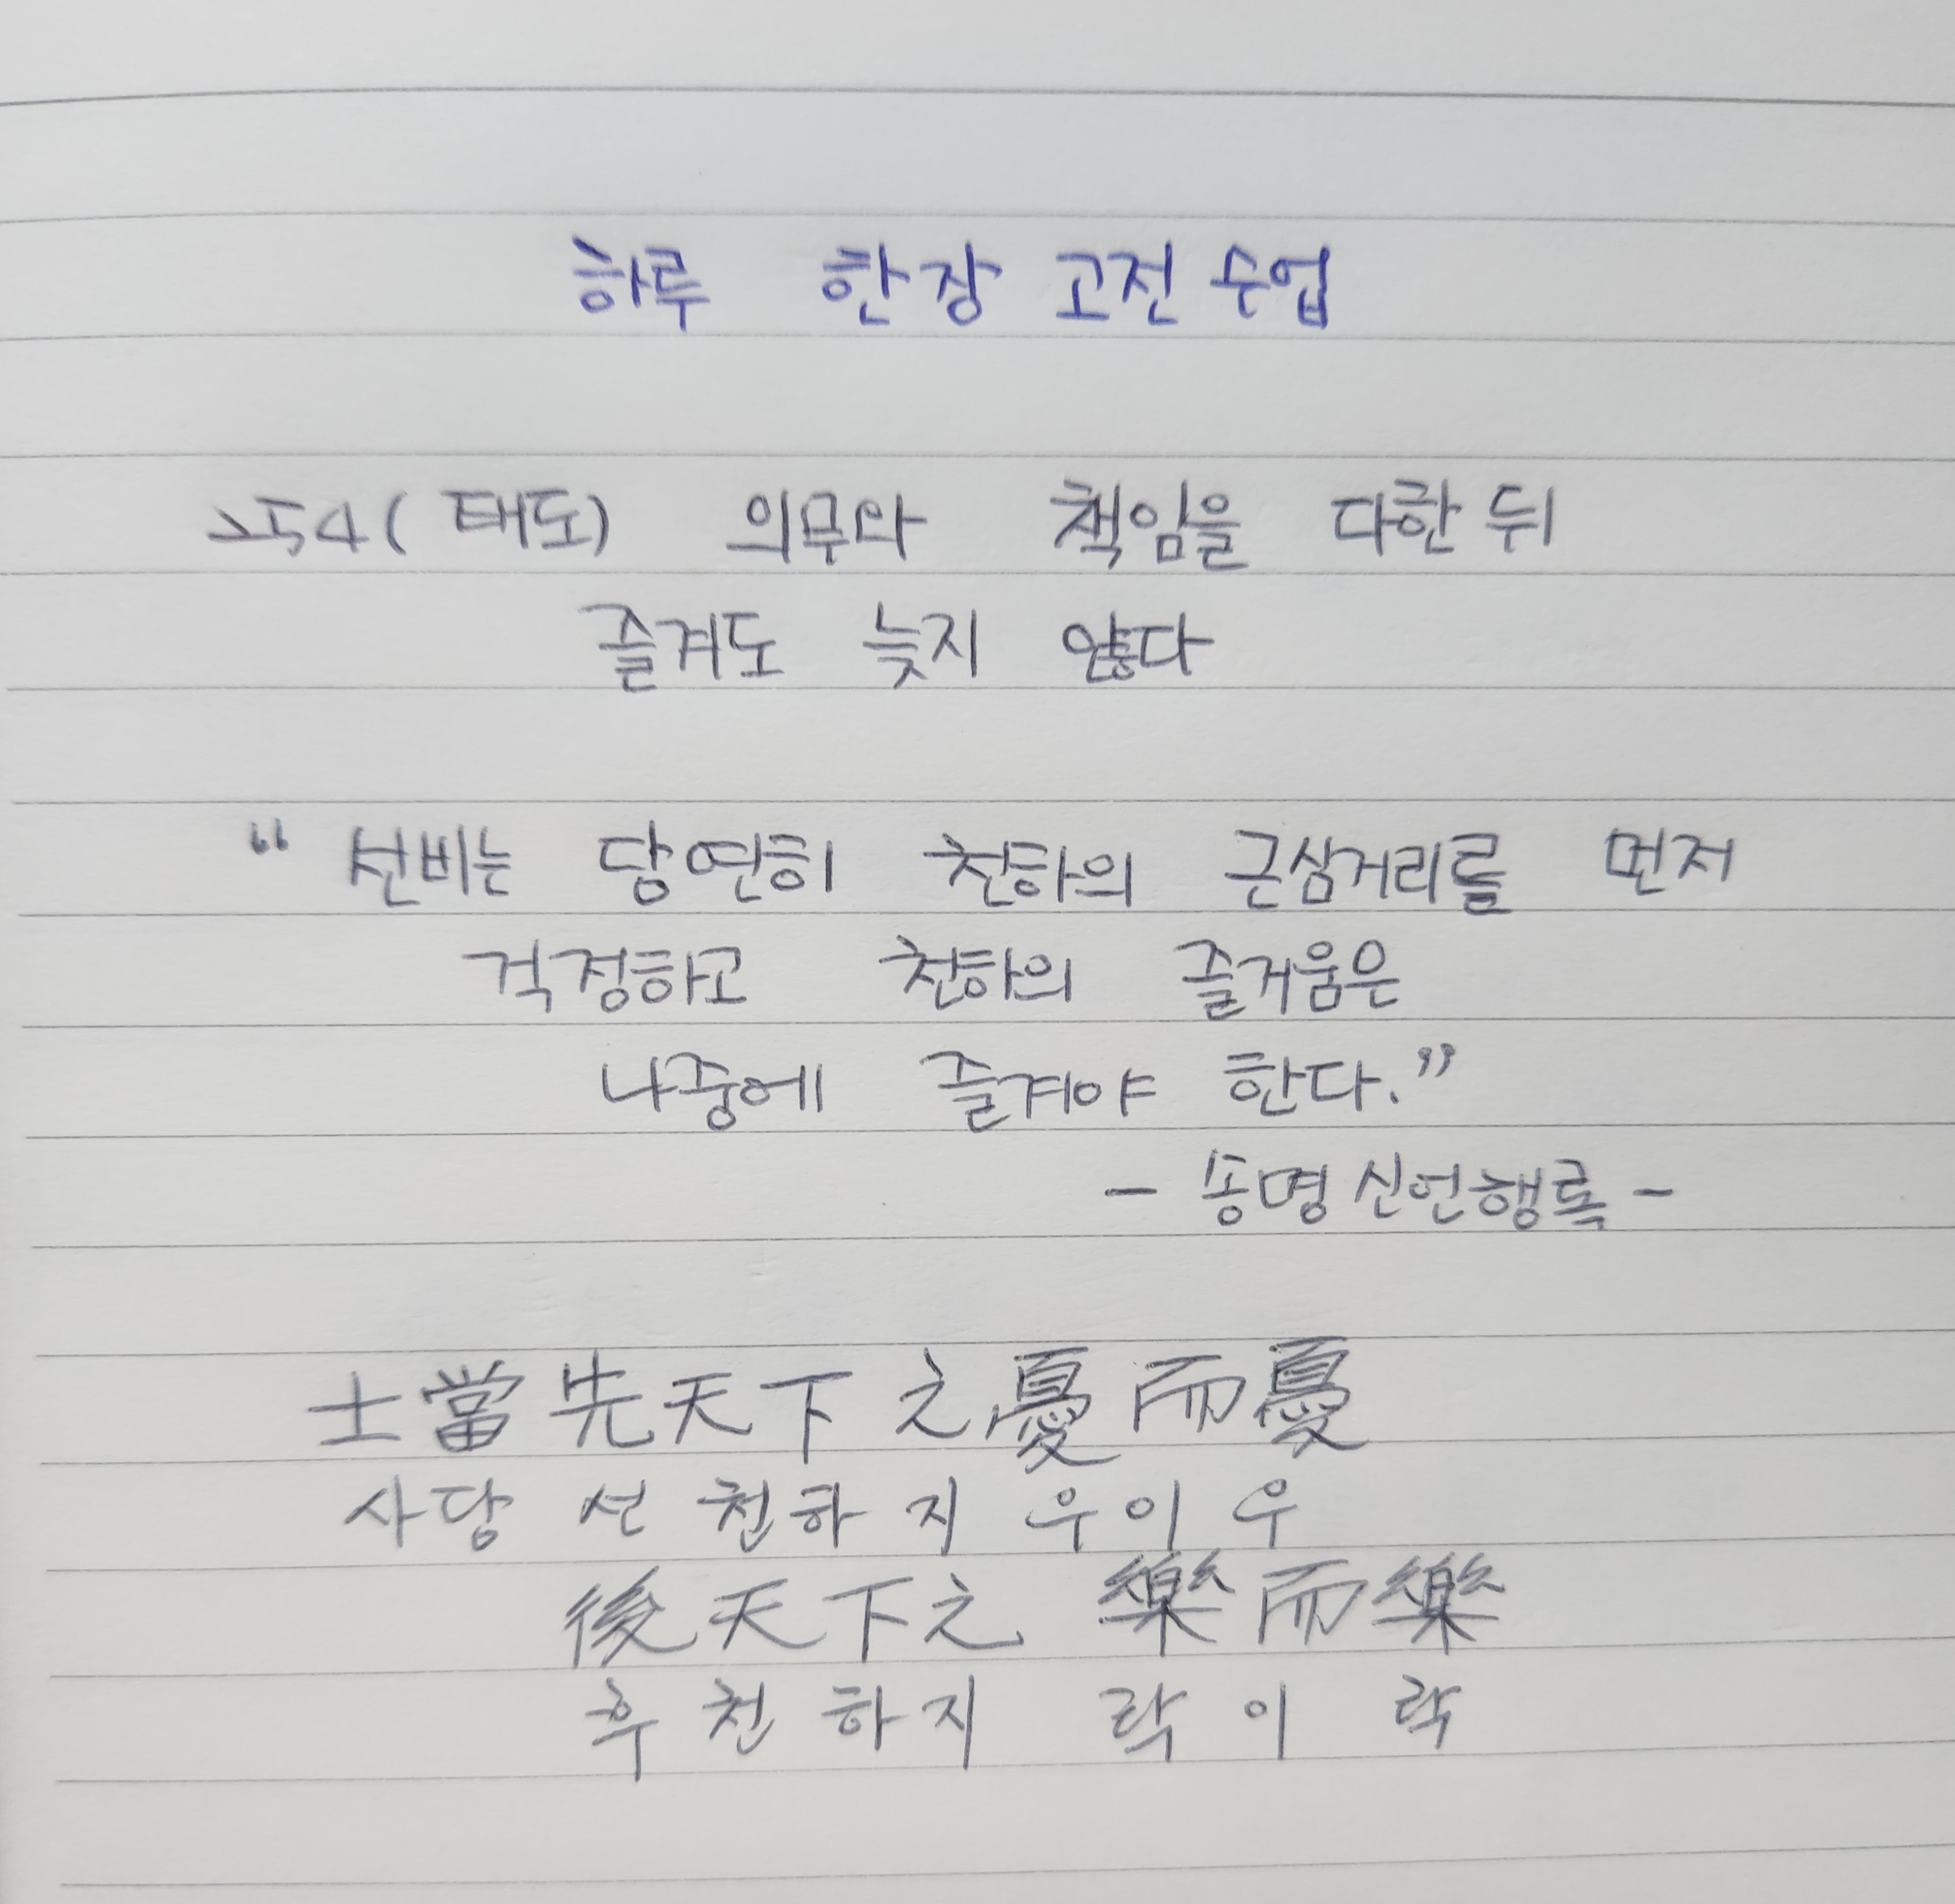 하루 한장 고전 수업
254 (태도) 의무와 책임을 다한 뒤
즐겨도 늦지 않다
“ 선비는 당연히 천하의 근심거리를 먼저
걱정하고 천하의 즐거움은
나중에 즐겨야 한다.”
- 송명신언행록 -
士當先天下之憂而憂
사당 선 천하 지 우이 우
後天下之 樂而樂
후 천 하지 락 이 락